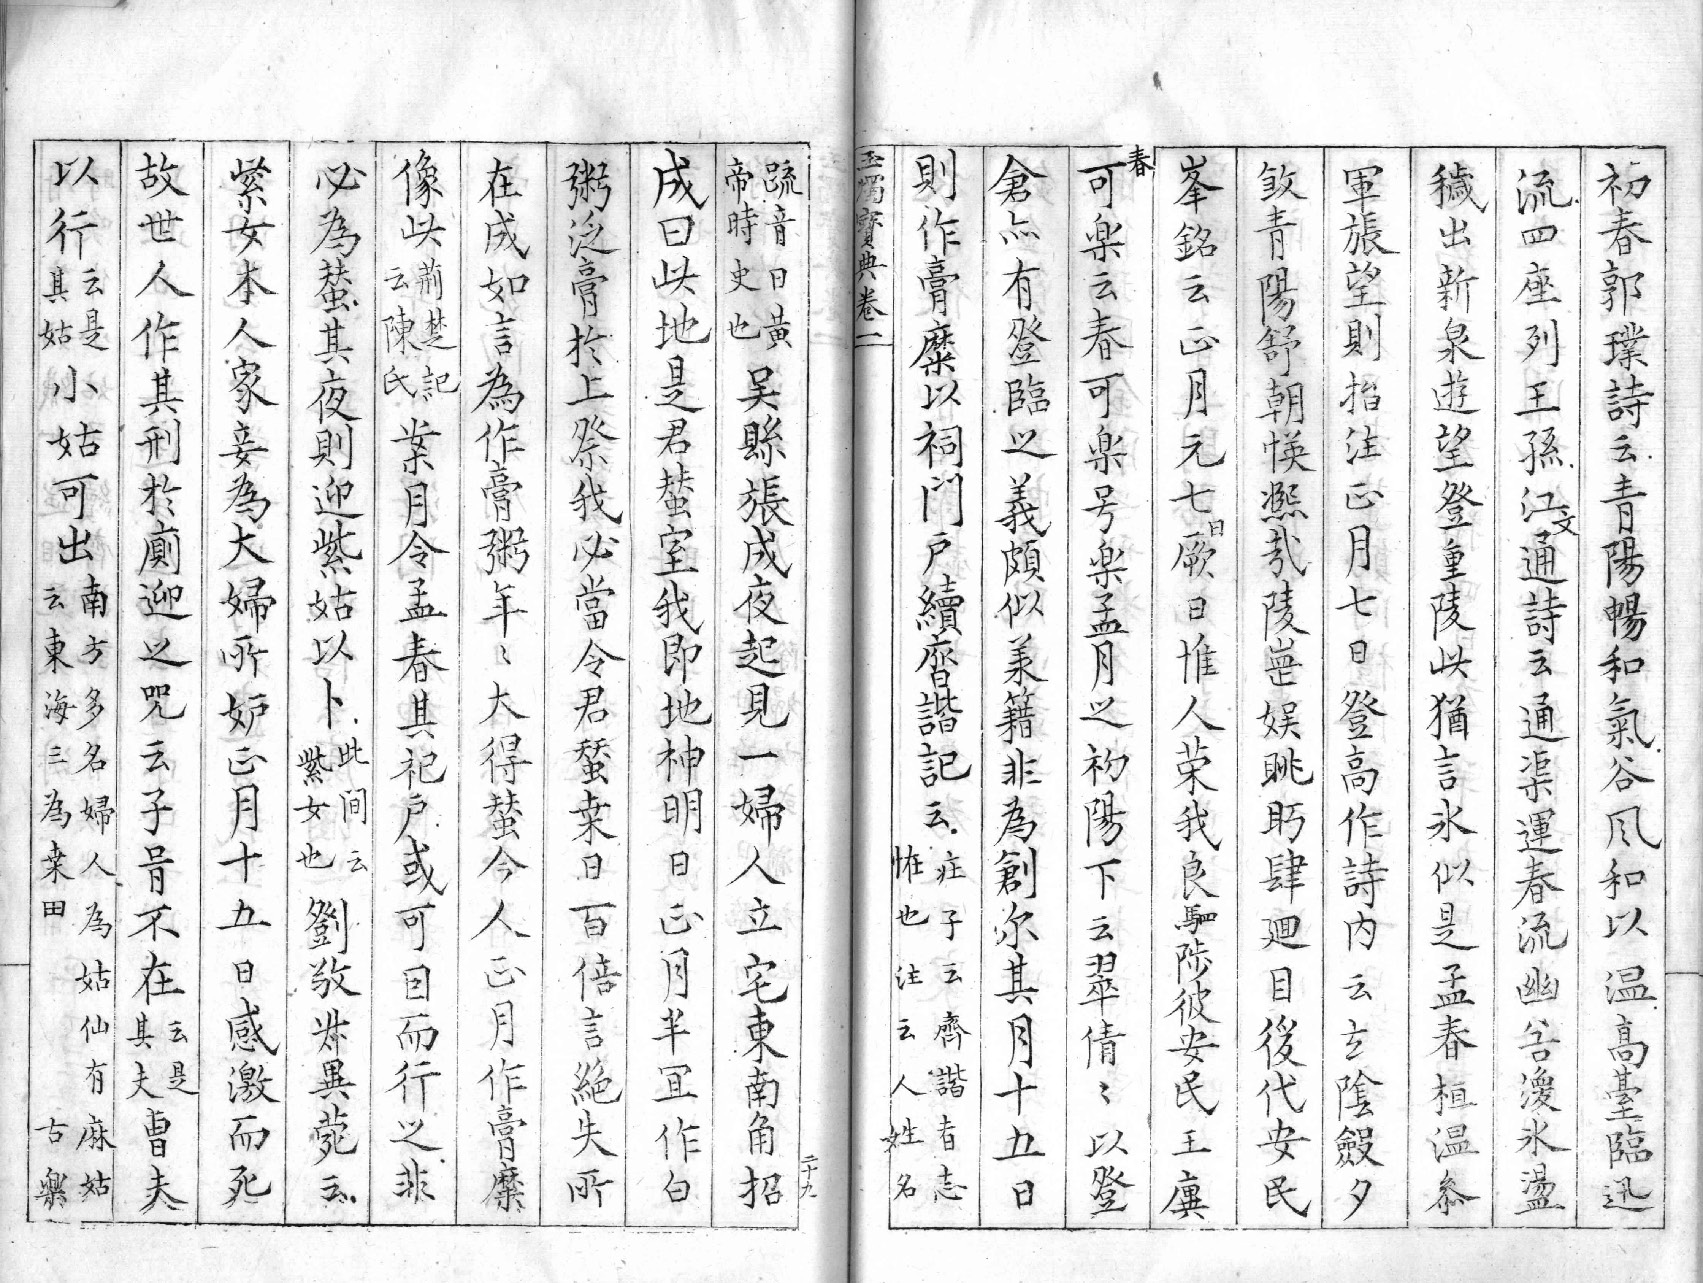 初春郭璞詩云青陽暢和氣谷风和以温高臺臨迅
流四座列王孫江文通詩云通渠運春流幽谷澓氷盪
穢出新泉遊望登重陵此猶言氷似是孟春桓温叅
軍張望則抬注正月七日登高作詩内云玄陰斂夕
敛青陽舒朝愥凞哉陵崗娱眺眄肆廻目後代安民
峯銘云正月元七日厥日惟人荣我良駟陟彼安民王廙
春可楽云春可楽号楽孟月之初陽下云翠倩〻以登
倉点有登臨之義頗似羡籍非為創尔其月十五日
則作膏糜以祠門戸續齊諧記云疘子云齊諧者志
恠也注云人姓名
玉燭寳典卷一
二十九
踈音曰黄
帝時史也吴縣張成夜起見一婦人立宅東南角招
成曰此地是君蝅室我即地神明日正月半冝作白
粥泛膏於上祭我必當令君蝅桒日百倍言絶失所
在成如言為作膏粥年〻大得蝅今人正月作膏糜
像此荊楚記
云陳氏案月令孟春其祀戸或可因而行之非
必為蝅其夜則迎紫姑以卜此间云
紫女也劉敬㳤異苑云
紫女本人家妾為大婦所妒正月十五日感激而死
故世人作其刑於廁迎之咒云子胥不在云是
其夫曹夫
以行云是
其姑小姑可出南方多名婦人為姑姑仙有麻姑
云東海三為桒田古樂